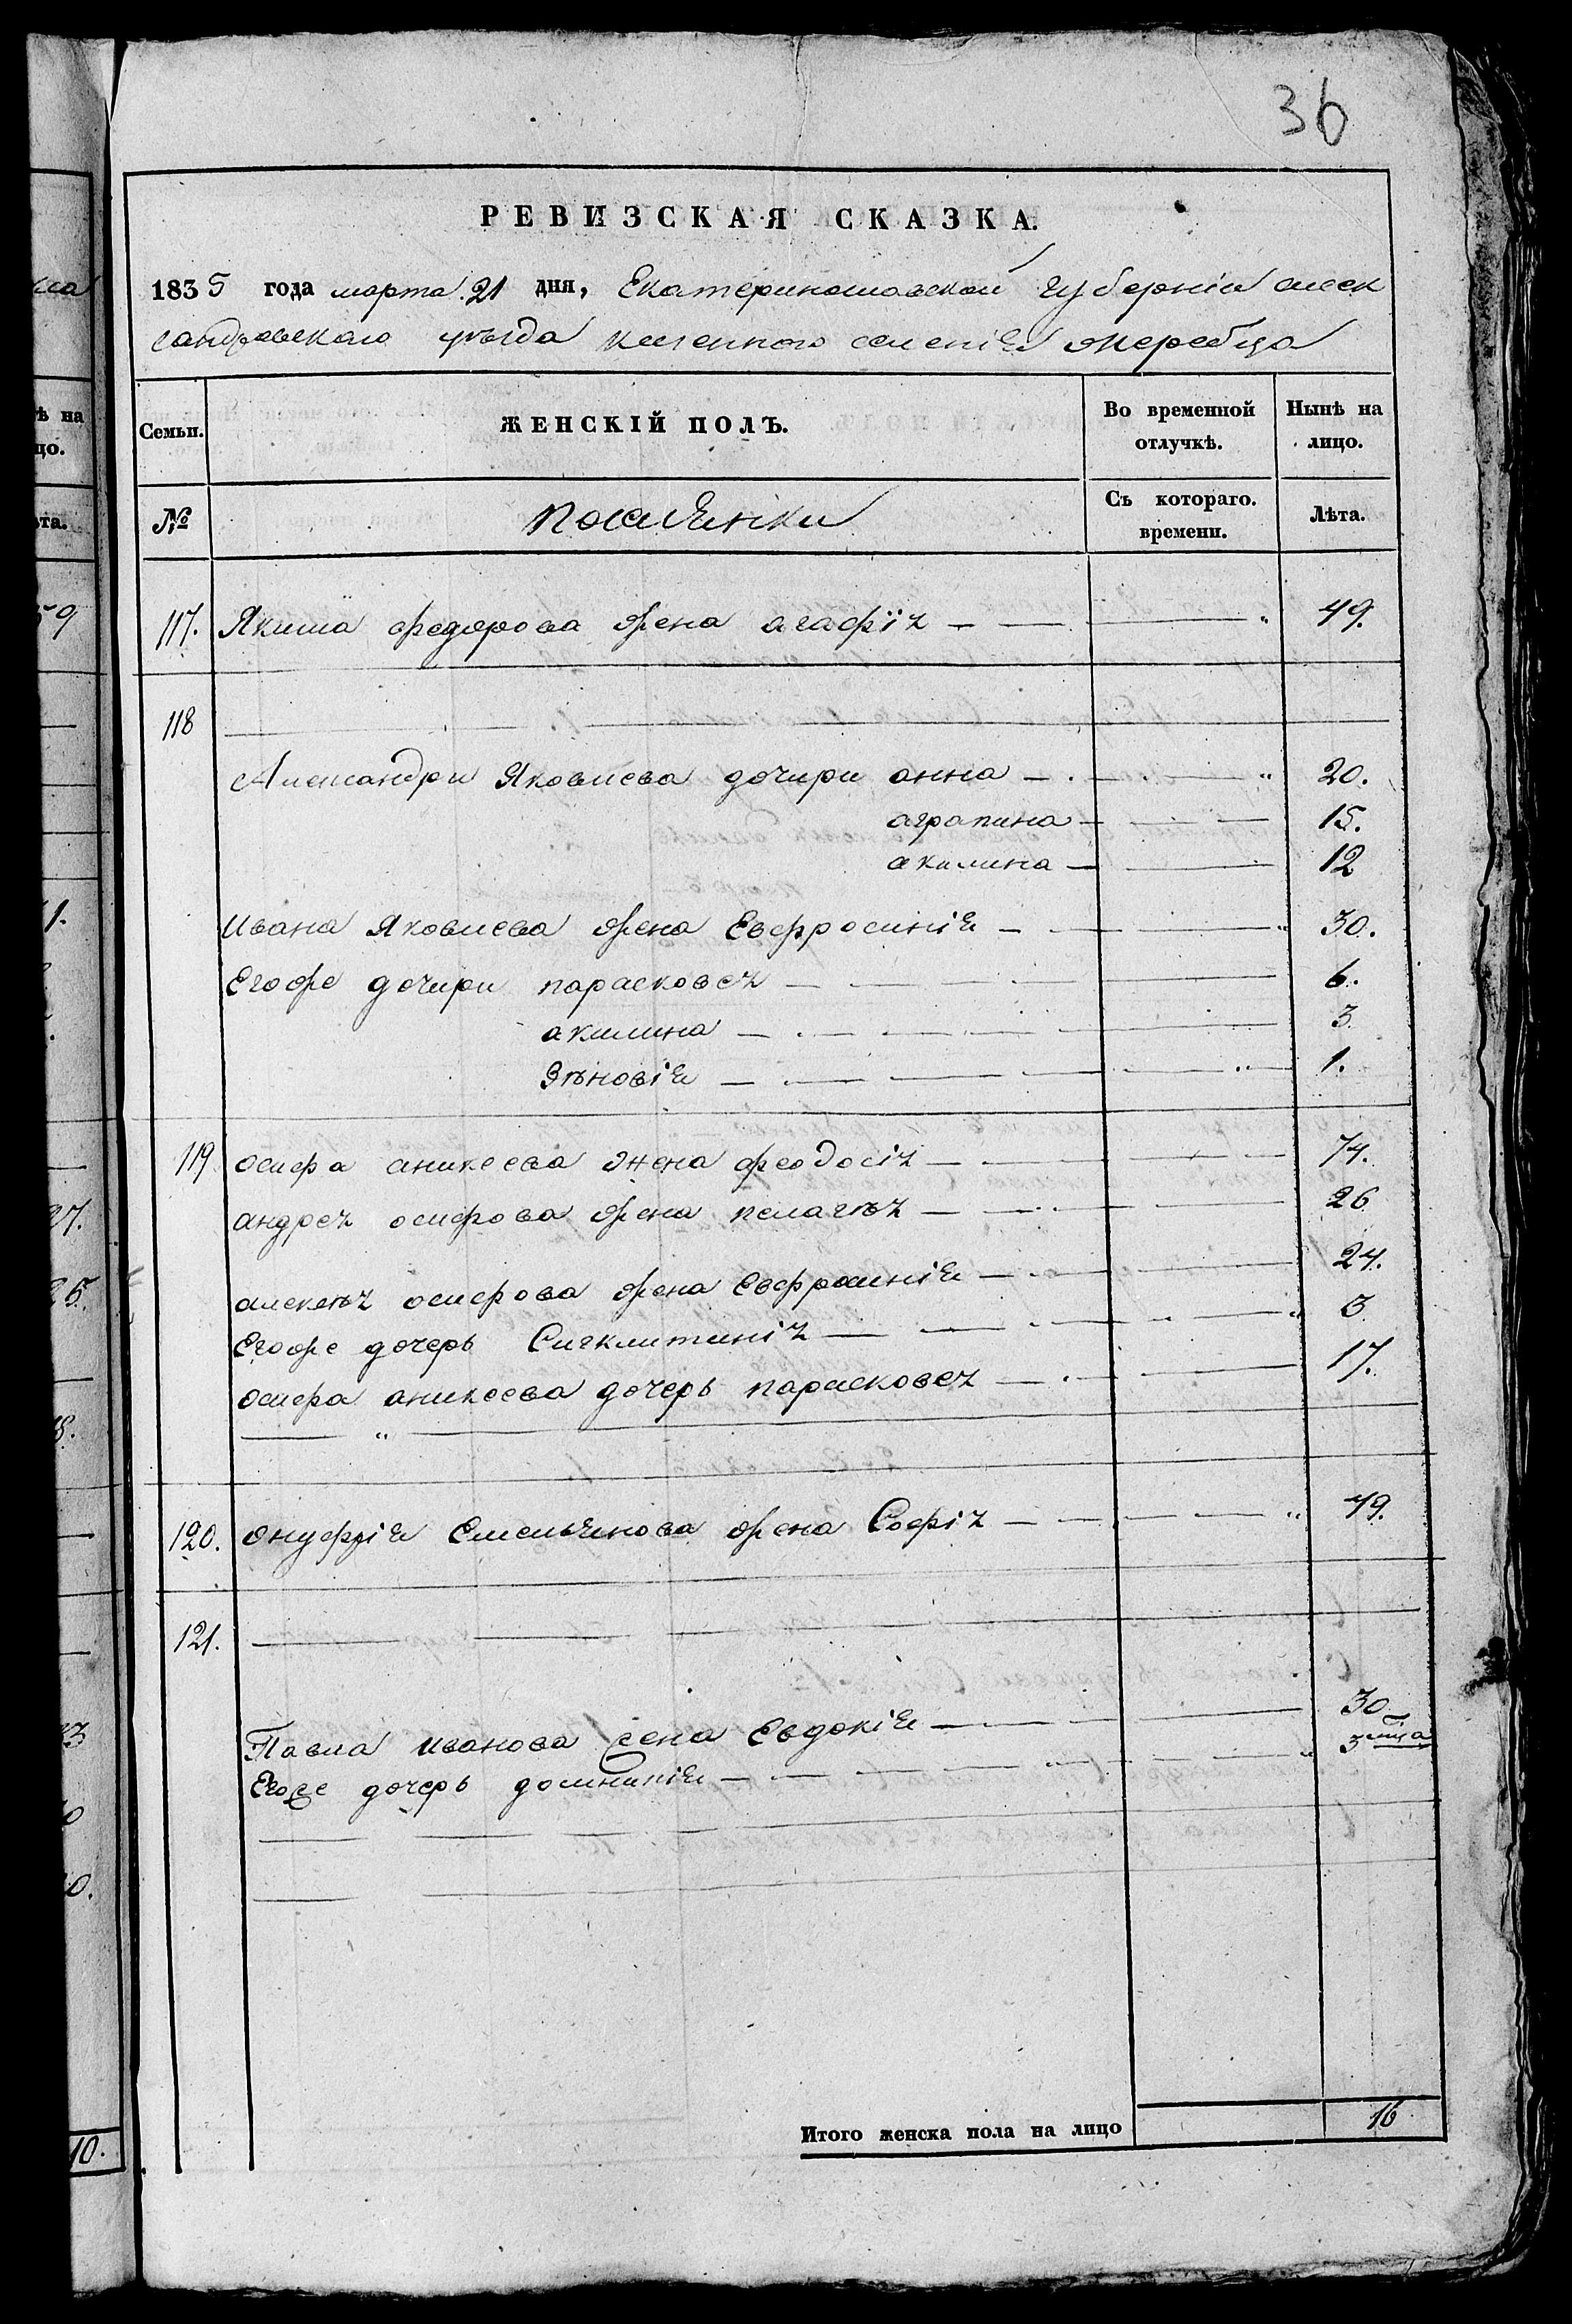 36
РЕВИЗСКАЯ СКАЗКА.
1835 года марта 21 дня, Екатеринославской губерніи алек
сандровского уѣзда казенного селенія жеребца
Семьи. ЖЕНСКІЙ ПОЛЪ. Во временной отлучкѣ. Нынѣ на лицо.
№ поселянки Съ котораго. времени. Лѣта.
117. Якима федорова жена агафія 49.
118
Александри Яковлева дочири анна 20.
аграпина 15.
акилина 12
Ивана Яковлева жена Евфросинія 30.
Егоже дочири парасковея 6.
акилина 3.
Зѣновія 1.
119 осифа аникеева жена феодосія 74.
андрея осифова жена пелагѣя 26
алексѣя осифова жена Евфросинія 24.
Егоже дочерь Сигклитинія 3
осифа аникеева дочерь парасковея 17.
120. онуфрія Емельянова жена Софія 49.
121.
Павла иванова жена Евдокія 30
Егоже дочерь домникія 3 мца
Итого женска пола на лицо 16
9
1.
27.
25.
8.
10.